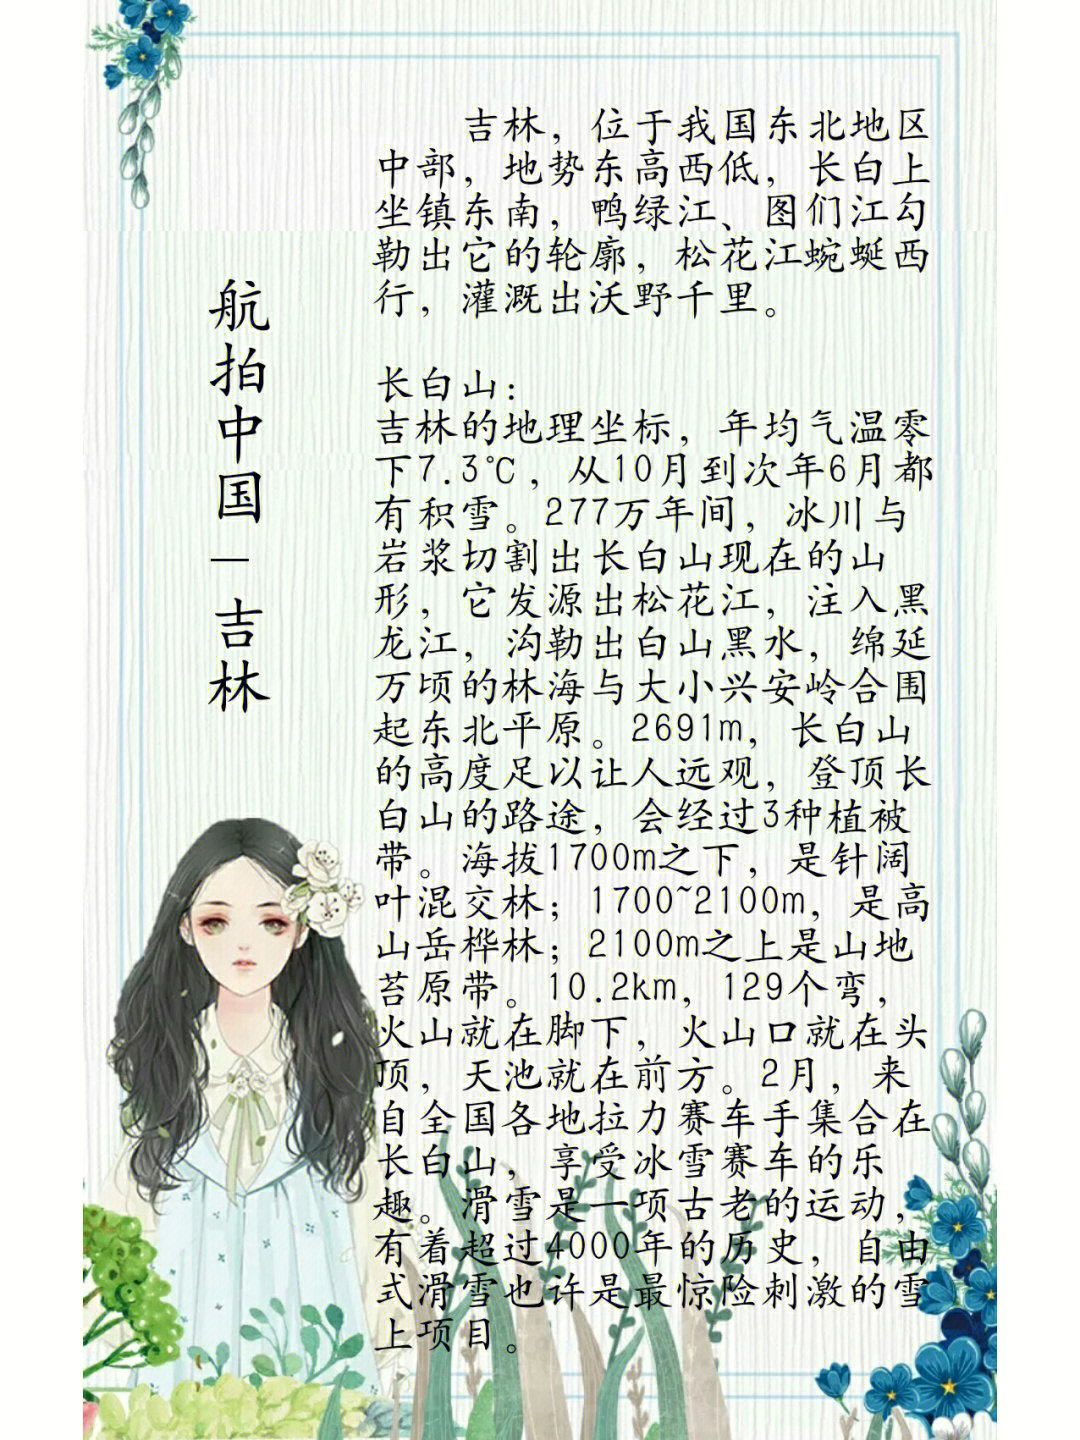 航拍中国—吉林
吉林，位于我国东北地区
中部，地势东高西低，长白上
坐镇东南，鸭绿江、图们江勾
勒出它的轮廓，松花江蜿蜒西
行，灌溉出沃野千里。
长白山：
吉林的地理坐标，年均气温零
下7.3℃，从10月到次年6月都
有积雪。277万年间，冰川与
岩浆切割出长白山现在的山
形，它发源出松花江，注入黑
龙江，沟勒出白山黑水，绵延
万顷的林海与大小兴安岭合围
起东北平原。2691m，长白山
的高度足以让人远观，登顶长
白山的路途，会经过3种植被
带。海拔1700m之下，是针阔
叶混交林；1700~2100m，是高
山岳桦林；2100m之上是山地
苔原带。10.2km，129个弯，
火山就在脚下，火山口就在头
顶，天池就在前方。2月，来
自全国各地拉力赛车手集合在
长白山，享受冰雪赛车的乐
趣。滑雪是一项古老的运动，
有着超过4000年的历史，自由
式滑雪也许是最惊险刺激的雪
上项目。